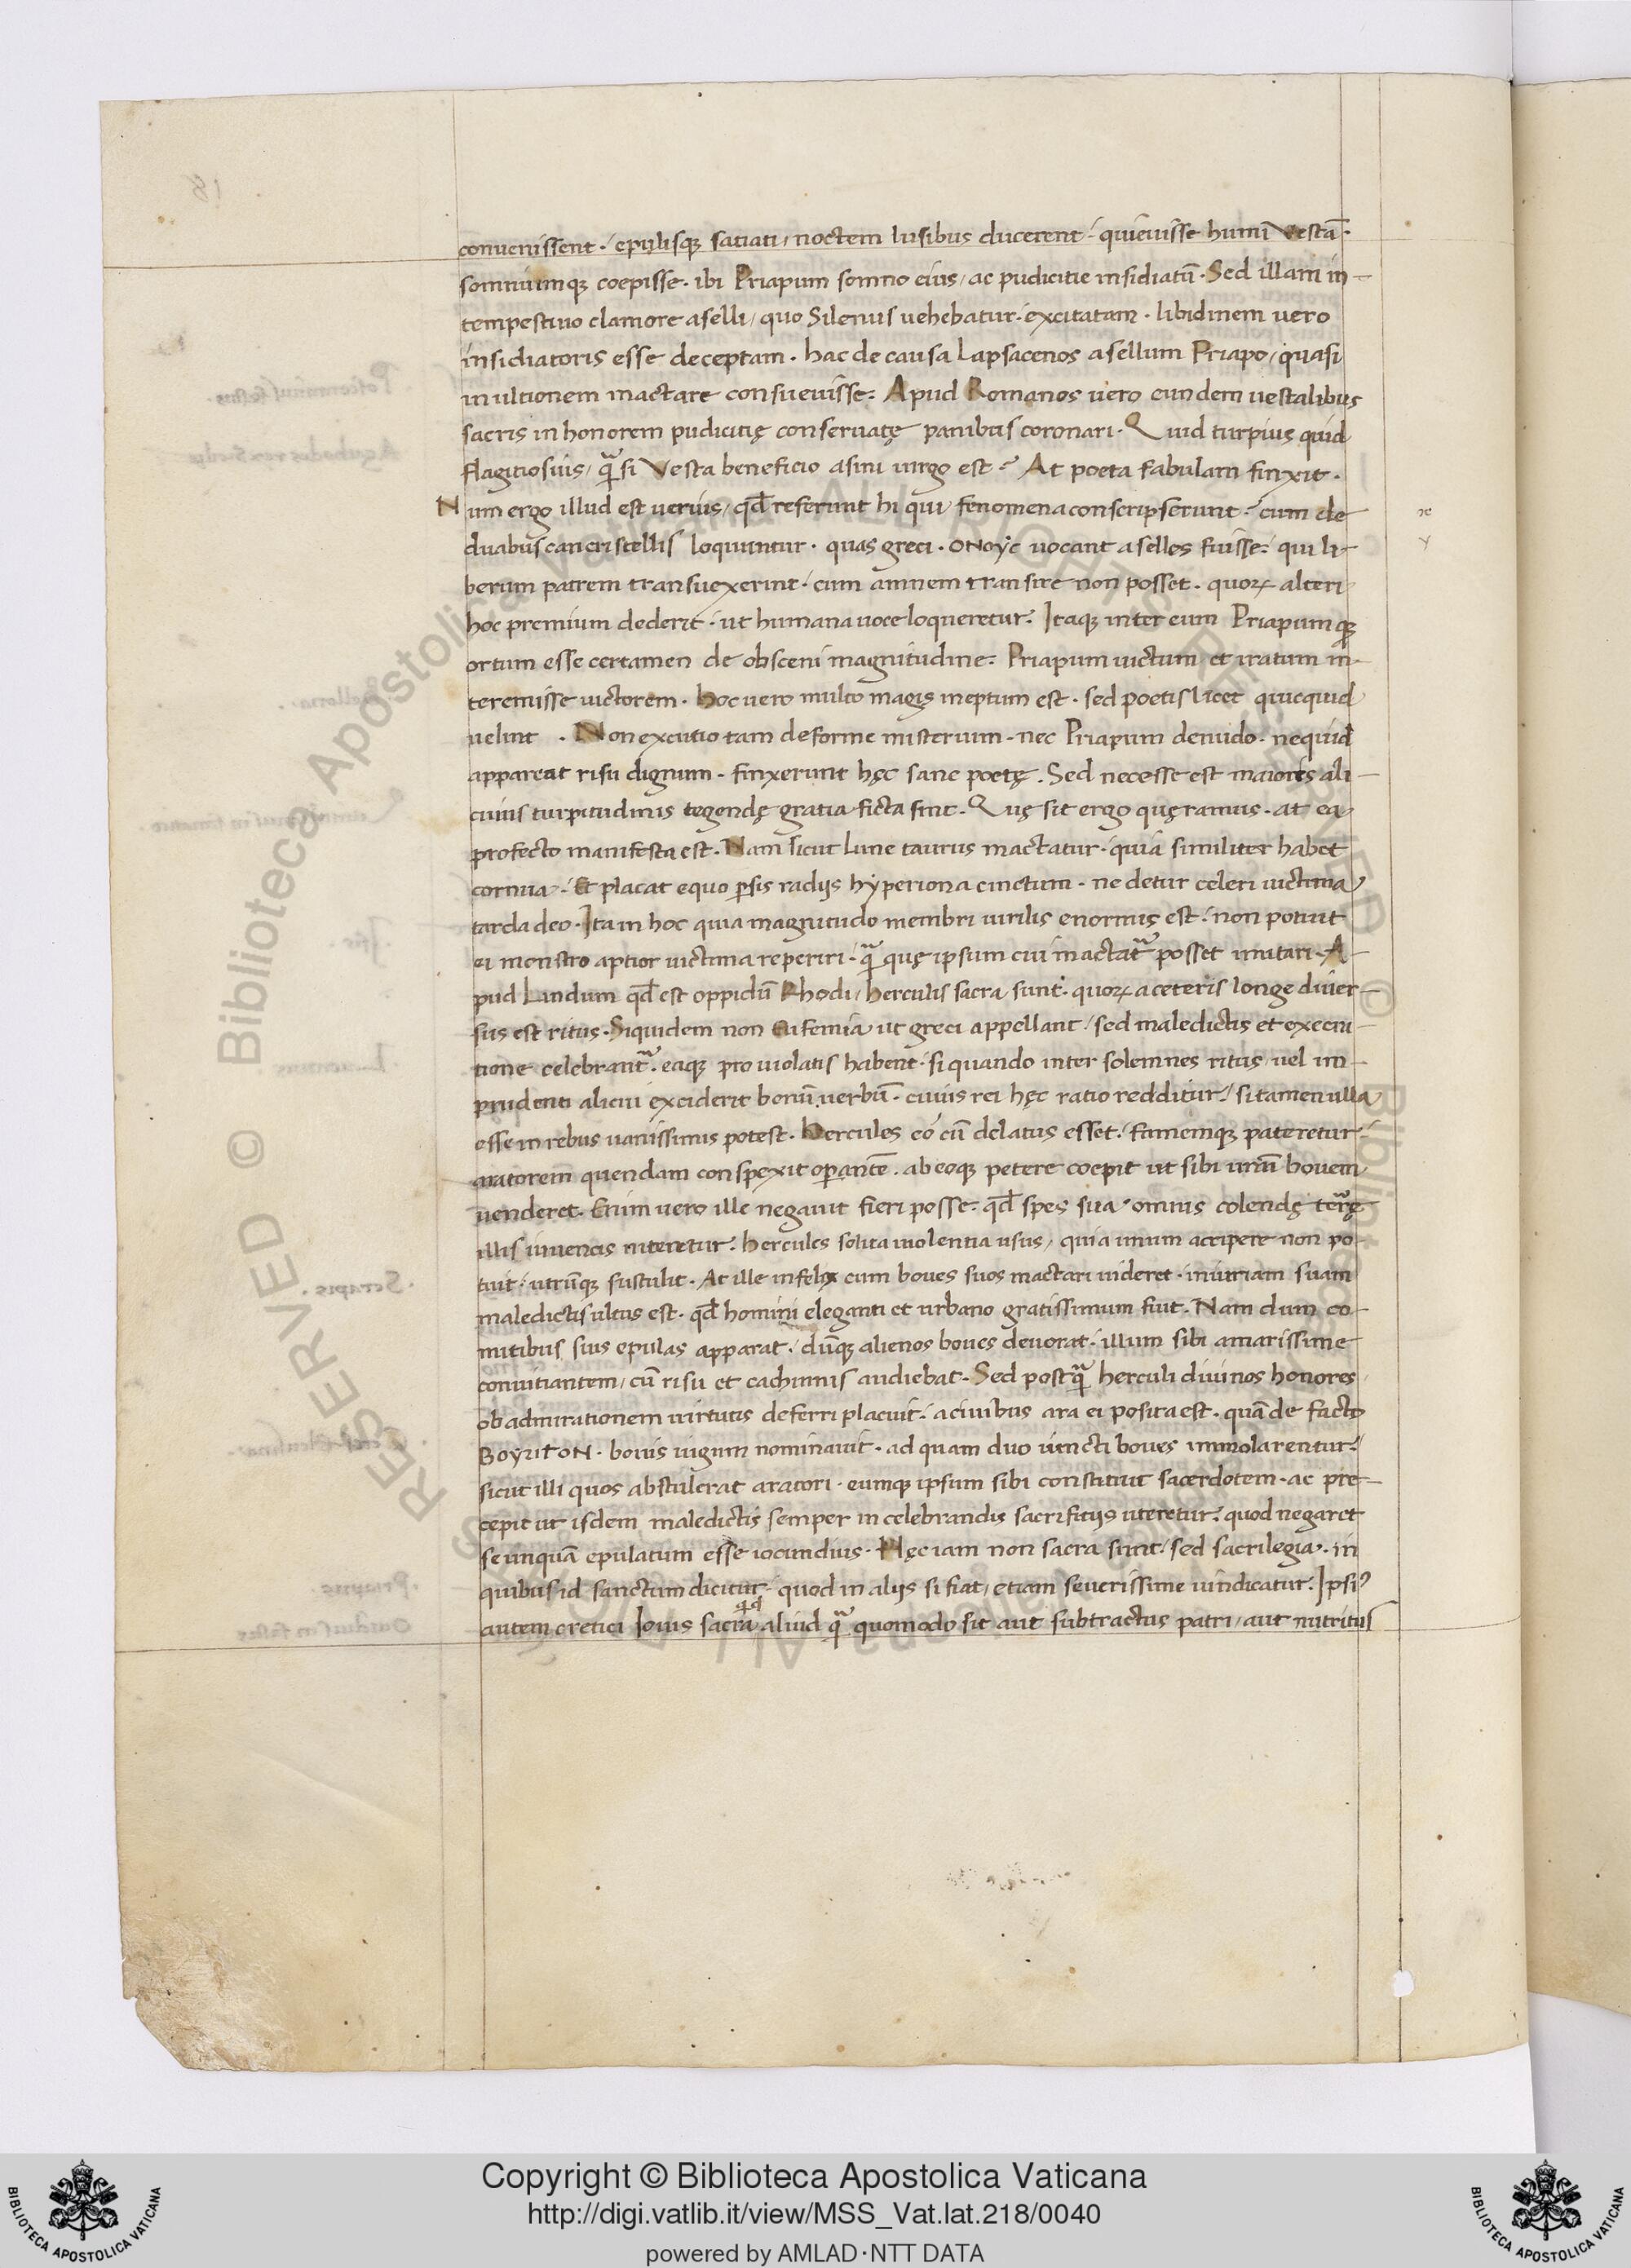 convenissent. epulisq; satiati, noctem lusibus ducerent. quievisse humi Vestā.
somniumq; coepisse. ibi Priapum somno eius, ac pudicitie insidiatū. Sed illam in-
tempestivo clamore aselli, quo Silenus uehebatur. excitatam. libidinem uero
insidiatoris esse deceptam. hac de causa Lapsacenos asellum Priapo, quasi
in ultionem mactare consuevisse. Apud Romanos uero eundem uestalibus
sacris in honorem pudicitię conseruatę panibus coronari. Quid turpius quid
flagitiosius, q̄ si Vesta beneficio asini uirgo est? At poeta fabulam finxit.
Num ergo illud est uerius, qd̄ referunt hi qui fenomena conscripserunt? cum de
duabus cancri stellis loquuntur. quas greci. ONOYC uocant asellos fuisse. qui li-
berum patrem transuexerint. cum amnem transire non posset. quoꝝ alteri
hoc premium dederit. ut humana uoce loqueretur. Itaq; inter eum Priapumq;
ortum esse certamen de obsceni magnitudine. Priapum uictum et iratum in-
teremisse uictorem. hoc uero multo magis ineptum est. sed poetis licet quicquid
uelint. Non excutio tam deforme misterium. nec Priapum denudo. nequid
appareat risu dignum. finxerunt hęc sane poetę. Sed necesse est maioris ali-
cuius turpitudinis tegendę gratia ficta sint. Quę sit ergo quęramus. at ea
profecto manifesta est. Nam sicut Lune taurus mactatur. quia similiter habet
cornua. Et placat equo persis radijs hyperiona cinctum. ne detur celeri uictima
tarda deo. Ita in hoc quia magnitudo membri uirilis enormis est. non potuit
ei monstro aptior uictima reperiri. q̄ quę ipsum cui mactat̄ posset imitari. A-
pud Lindum qd̄ est oppidū Rhodi, herculis sacra sunt. quoꝝ a ceteris longe diuer-
sus est ritus. Siquidem non Eufemia ut greci appellant, sed maledictis et execra-
tione celebrant̄. eaq; pro uiolatis habent. si quando inter solemnes ritus uel im-
prudenti alicui exciderit bonū uerbū. cuius rei hęc ratio redditur, si tamen ulla
esse in rebus uanissimis potest. Hercules eo cū delatus esset, famemq; pateretur.
aratorem quendam conspexit operantē. ab eoq; petere coepit ut sibi unū bouem
uenderet. Enim uero ille negauit fieri posse. qd̄ spes sua omnis colendę terrę
illis iuuencis niteretur. hercules solita uiolentia usus, quia unum accipere non po-
tuit. utrūq; sustulit. At ille infelix cum boues suos mactari uideret. iniuriam suam
maledictis ultus est. qd̄ homini eleganti et urbano gratissimum fuit. Nam dum co-
mitibus suis epulas apparat. dūq; alienos boues deuorat. illum sibi amarissime
conuitiantem, cū risu et cachinnis audiebat. Sed postq̄ herculi diuinos honores
ob admirationem uirtutis deferri placuit. a ciuibus ara ei posita est. quā de facto
BOYZITON. bouis iugum nominauit. ad quam duo iuncti boues immolarentur.
sicut illi quos abstulerat aratori. eumq; ipsum sibi constituit sacerdotem. ac pre-
cepit ut isdem maledictis semper in celebrandis sacrifitijs uteretur. quod negaret
se unquā epulatum esse iocundius. Hęc iam non sacra sunt, sed sacrilegia. in
quibus id sanctum dicitur. quod in alijs si fiat, etiam seuerissime uindicatur. Ipsi?
autem cretici Iouis sacra qd aliud q̄ quomodo sit aut subtractus patri, aut nutritus
Copyright © Biblioteca Apostolica Vaticana
http://digi.vatlib.it/view/MSS_Vat.lat.218/0040
powered by AMLAD·NTT DATA